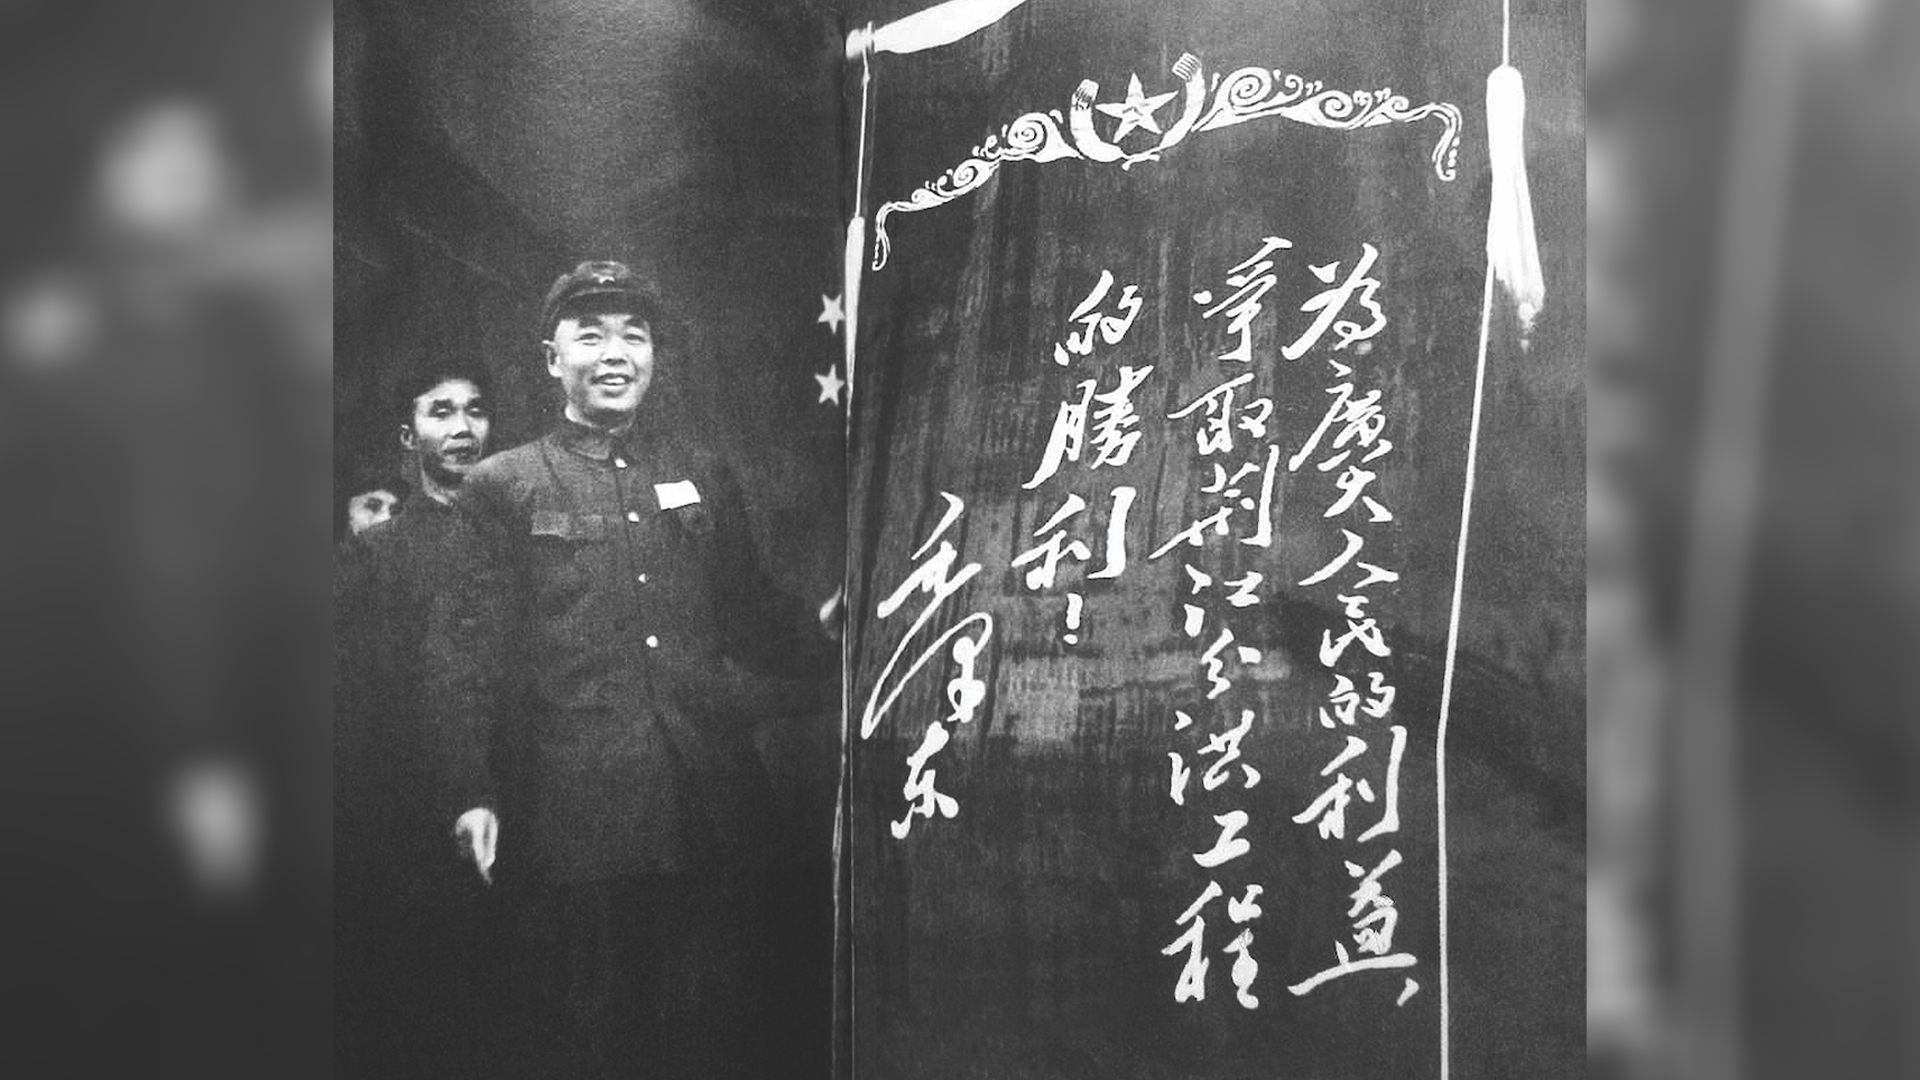 为廣大人民的利益、
爭取荆江分洪工程
的勝利！
毛澤东